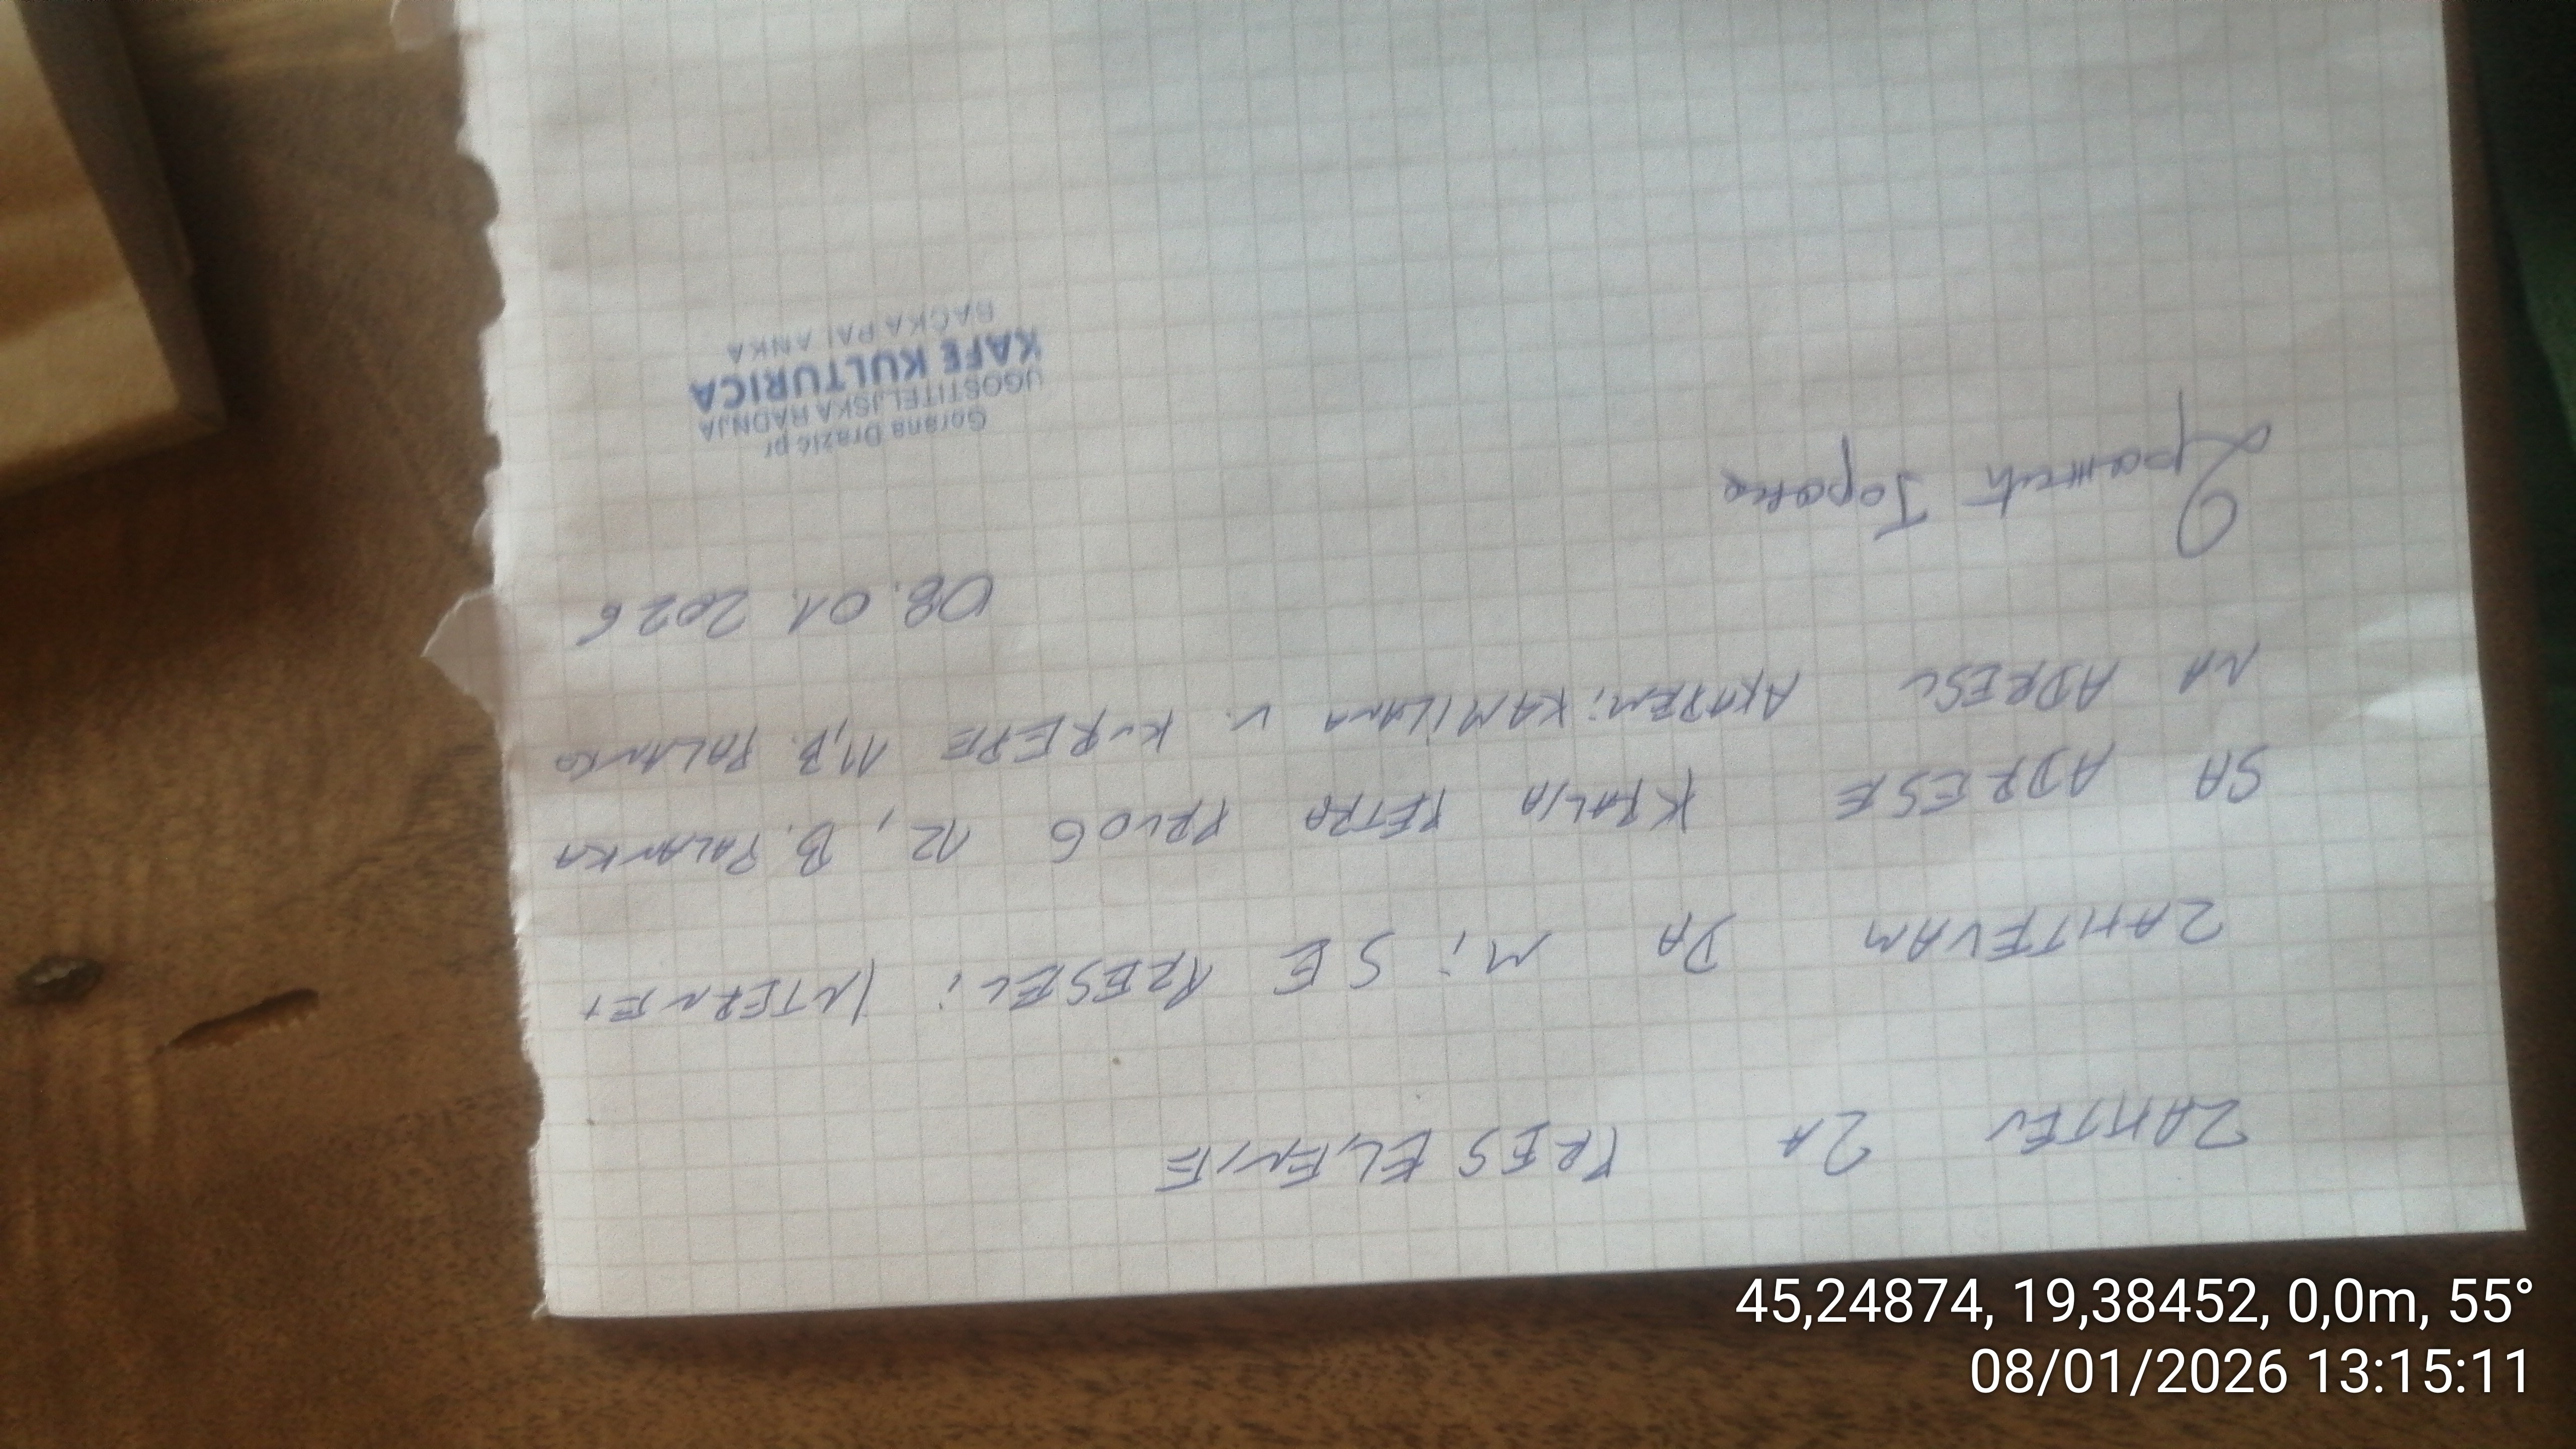 ZAHTEV ZA PRESELENJE
ZAHTEVAM DA Mi SE PRESELi INTERNET
SA ADRESE KRALJA PETRA PRVOG 12, B. PALANKA
NA ADRESU AKADEMiKA MILANA V. KUREPE 11, B. PALANKA
08.01.2026
Дражић Горана
Gorana Dražić pr
UGOSTITELJSKA RADNJA
KAFE KULTURICA
BAČKA PALANKA
45,24874, 19,38452, 0,0m, 55°
08/01/2026 13:15:11